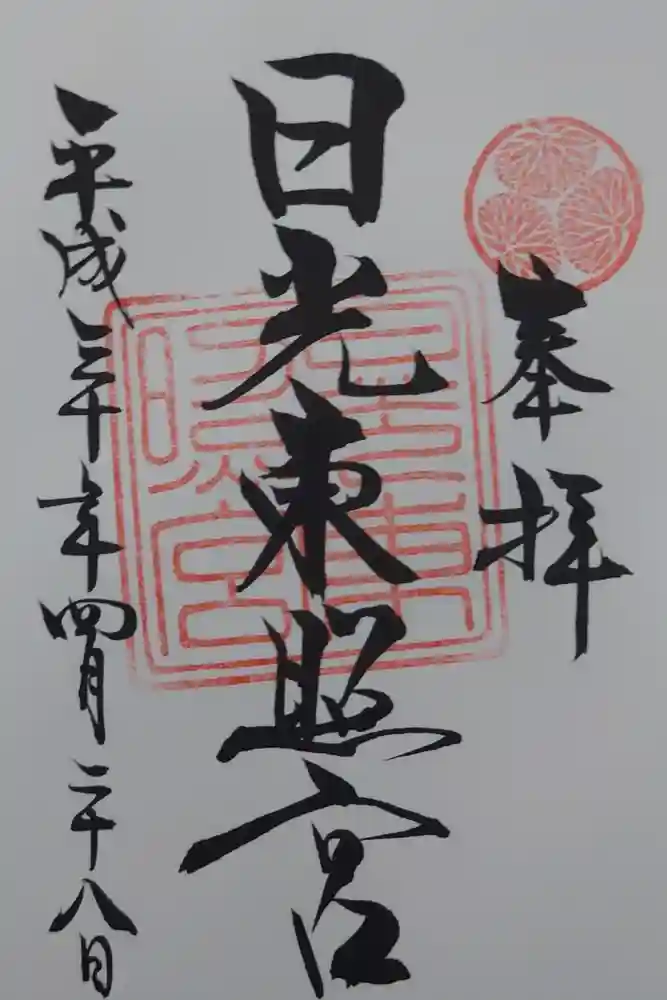 奉拝
日光東照宮
平成三十年四月二十八日